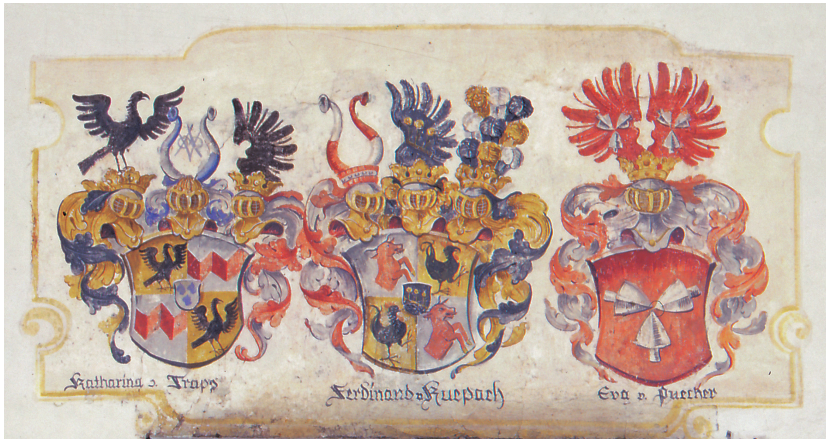 Katharina v. Trapp
Ferdinand v Kuepach
Eva v. Puecher